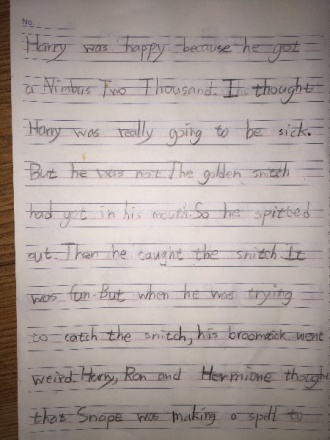 No.
Harry was happy because he got
a Nimbus Two Thousand. I thought
Harry was really going to be sick.
But he was not. The golden snitch
had got in his mouth. So he spitted
out. Then he caught the snitch. It
was fun. But when he was trying
to catch the snitch, his broomstick went
weird. Harry, Ron and Hermione though
that Snape was making a spell to